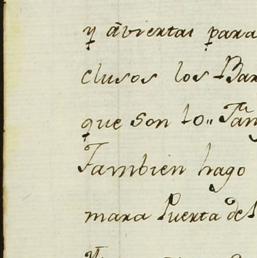 y aviertas para
clusos los Bar
que son lo" Tan
Tambien hago
mara Puerta de l